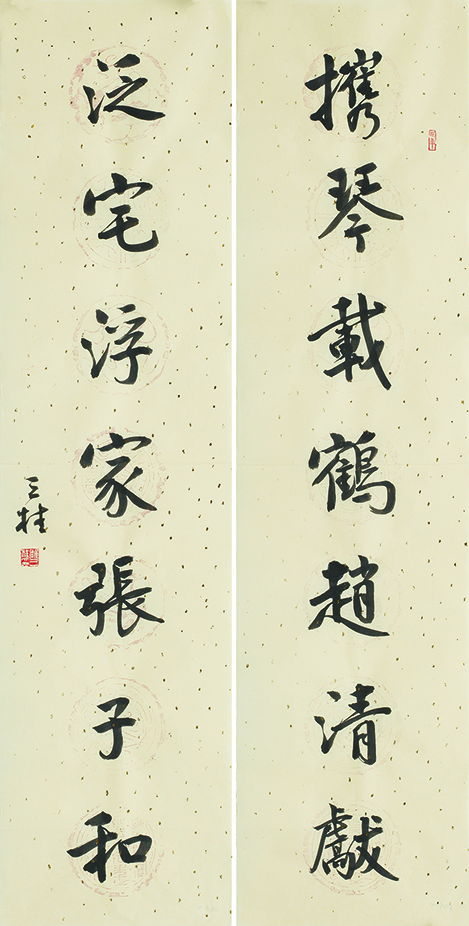 攜琴載鶴趙清獻
泛宅浮家張子和
三桂